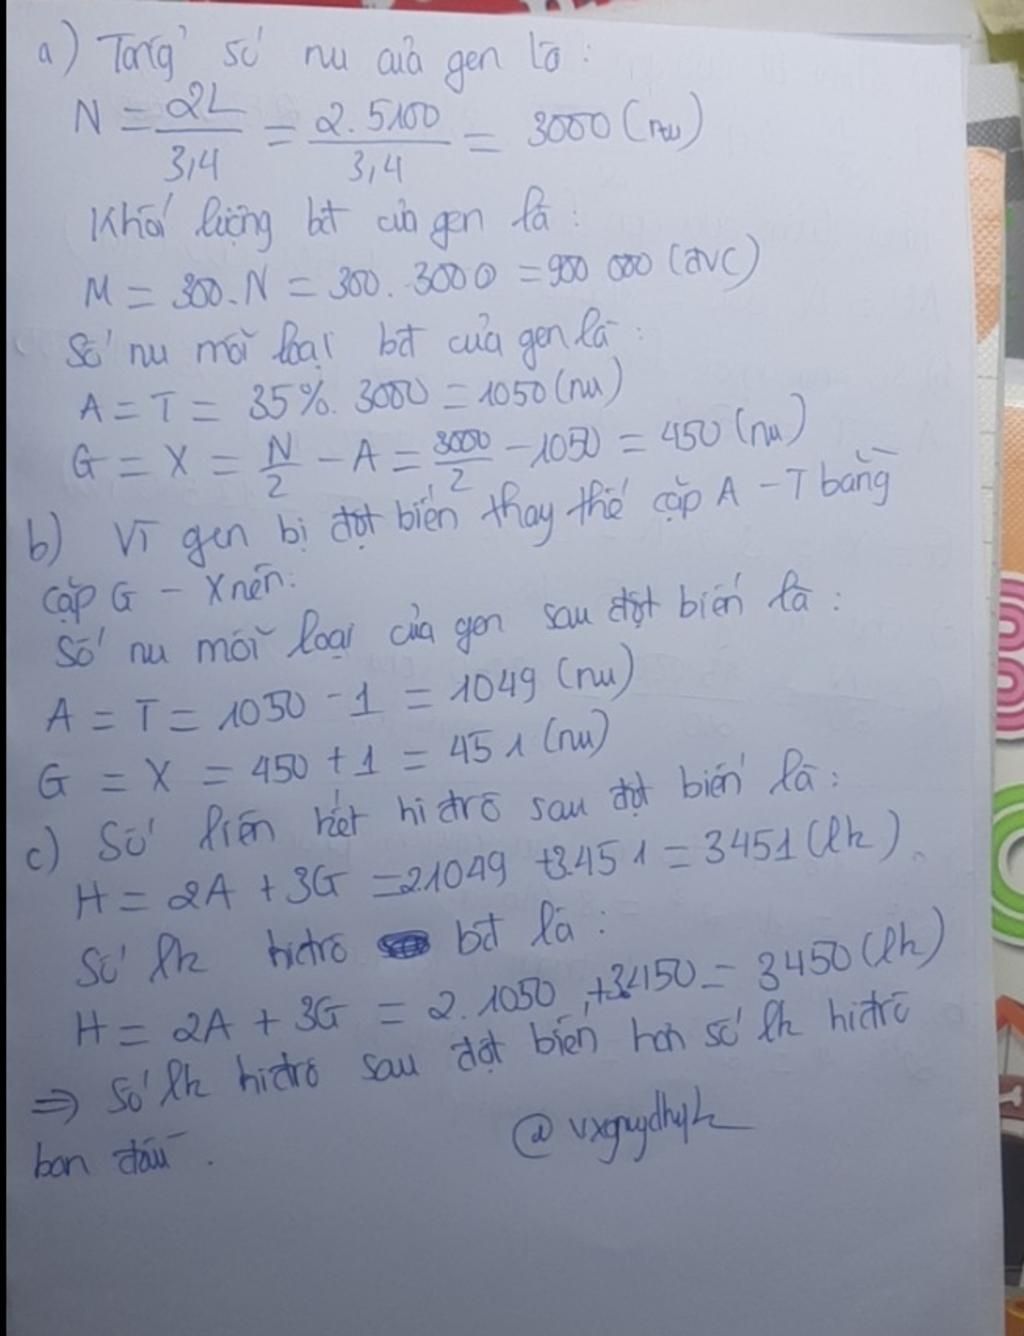 a) Tổng số nu của gen là :
N = 2L / 3,4 = 2.5100 / 3,4 = 3000 (nu)
Khối lượng bđ của gen là :
M = 300.N = 300. 3000 = 900 000 (đvC)
Số nu mỗi loại bđ của gen là :
A = T = 35%. 3000 = 1050 (nu)
G = X = N/2 - A = 3000/2 - 1050 = 450 (nu)
b) Vì gen bị đột biến thay thế cặp A - T bằng
cặp G - X nên:
Số nu mỗi loại của gen sau đột biến là :
A = T = 1050 - 1 = 1049 (nu)
G = X = 450 + 1 = 451 (nu)
c) Số liên kết hiđrô sau đột biến là :
H = 2A + 3G = 2.1049 + 3.451 = 3451 (lk)
Số lk hiđrô bđ là :
H = 2A + 3G = 2. 1050 + 3.450 = 3450 (lk)
⇒ Số lk hiđrô sau đột biến hơn số lk hiđrô
ban đầu .